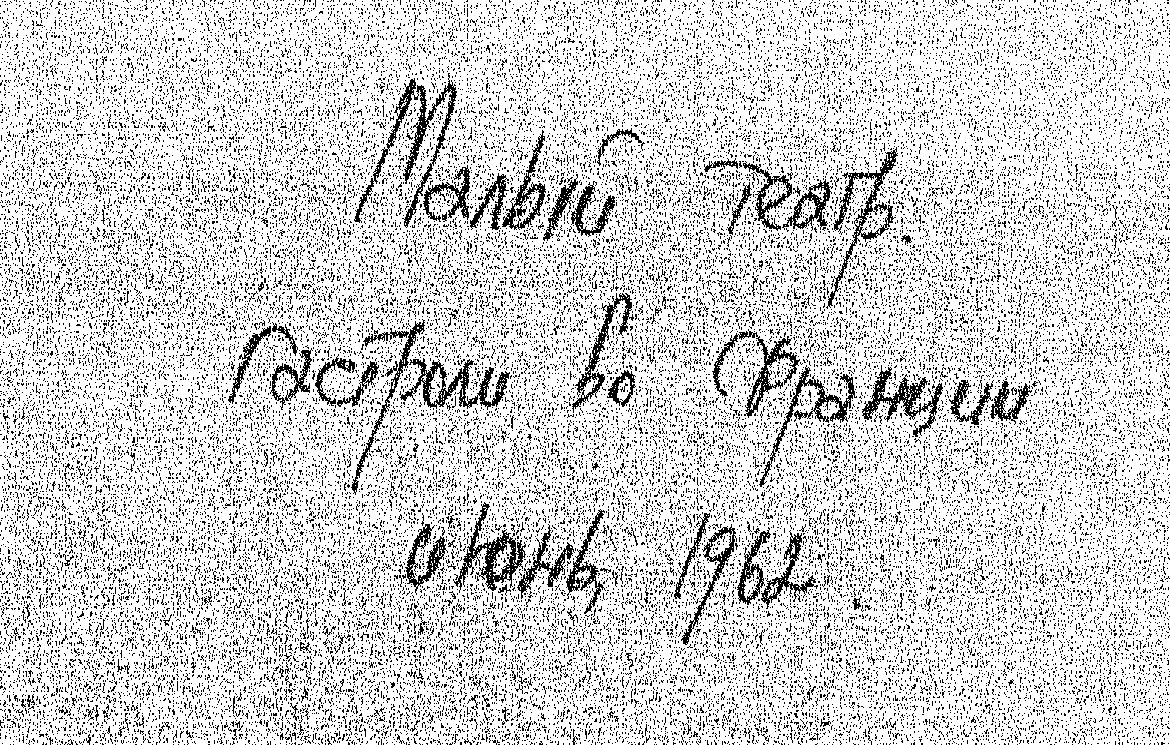 Малый театр.
гастроли во Франции
июнь, 1962